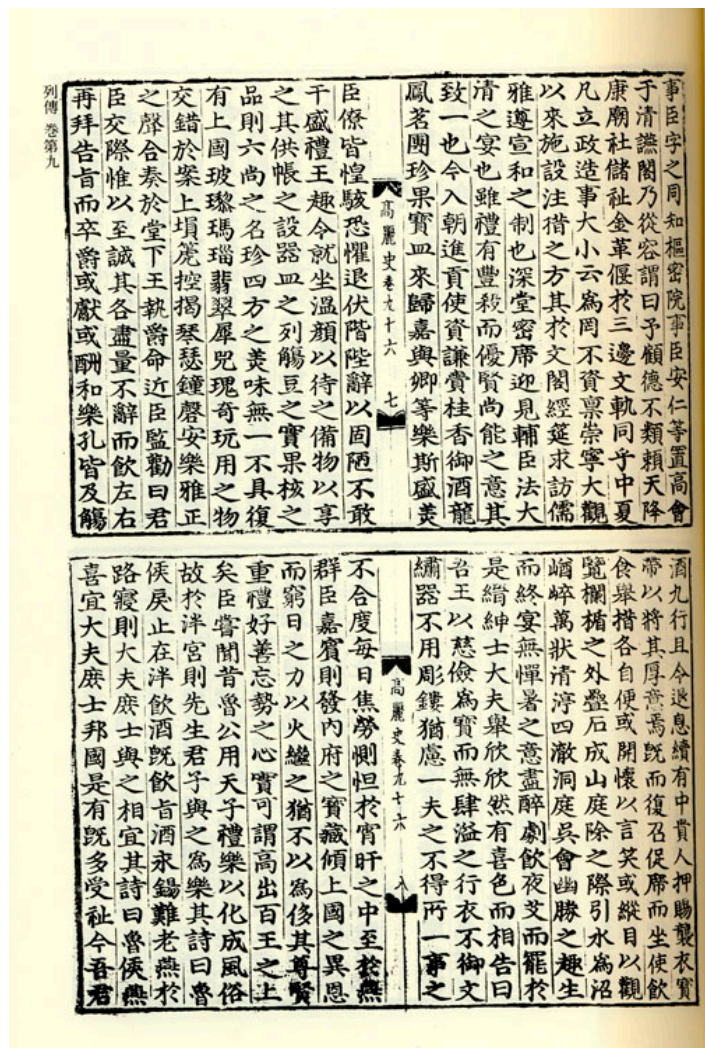 事臣字之同知樞密院事臣安仁等置高會
于清讌閣乃從容謂曰予顧德不類賴天降
康廟社儲祉金革偃於三邊文軌同乎中夏
凡立政造事大小云為罔不資稟崇寧大觀
以來施設注措之方其於文閣經筵求訪儒
雅遵宣和之制也深堂密席迎見輔臣法大
清之宴也雖禮有豐殺而優賢尚能之意其
致一也今入朝進貢使資謙賫桂香御酒龍
鳳茗團珍果寶皿來歸嘉與卿等樂斯盛羙
高麗史卷九十六 七
臣僚皆惶駭恐懼退伏階陛辭以固陋不敢
干盛禮王趣令就坐溫顏以待之備物以享
之其供帳之設器皿之列觴豆之實果核之
品則六尚之名珍四方之羙味無一不具復
有上國玻瓈瑪瑙翡翠犀兕瑰奇玩用之物
交錯於桉上塤箎椌楬琴瑟鐘磬安樂雅正
之聲合奏於堂下王執爵命近臣監勸曰君
臣交際惟以至誠其各盡量不辭而飲左右
再拜告旨而卒爵或獻或酬和樂孔皆及觴
列傳 卷第九
酒九行且令退息續有中貴人押賜襲衣寶
帶以將其厚意焉旣而復召促席而坐使飲
食舉措各自便或開懷以言笑或縱目以觀
覽欄楯之外疊石成山庭除之際引水為沼
崷崒萬狀清渟四澈洞庭吳會幽勝之趣生
而終宴無憚暑之意盡醉劇飲夜艾而罷於
是縉紳士大夫舉欣欣然有喜色而相告曰
吾王以慈儉為寶而無肆溢之行衣不御文
繡器不用彫鏤猶慮一夫之不得所一事之
高麗史卷九十六 八
不合度每日焦勞惻怛於宵旰之中至於燕
群臣嘉賓則發內府之寶藏傾上國之異恩
而窮日之力以火繼之猶不以為侈其尊賢
重禮好善忘勢之心實可謂高出百王之上
矣臣嘗聞昔魯公用天子禮樂以化成風俗
故於泮宮則先生君子與之為樂其詩曰魯
侯戾止在泮飲酒旣飲旨酒永錫難老燕於
路寢則大夫庶士與之相宜其詩曰魯侯燕
喜宜大夫庶士邦國是有旣多受祉今吾君